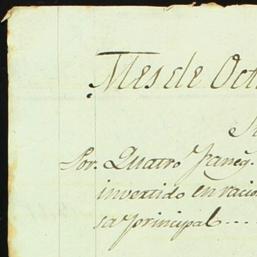 Mes de Oct
Por. Quatro faneg.
invertido en racio
sa principal...